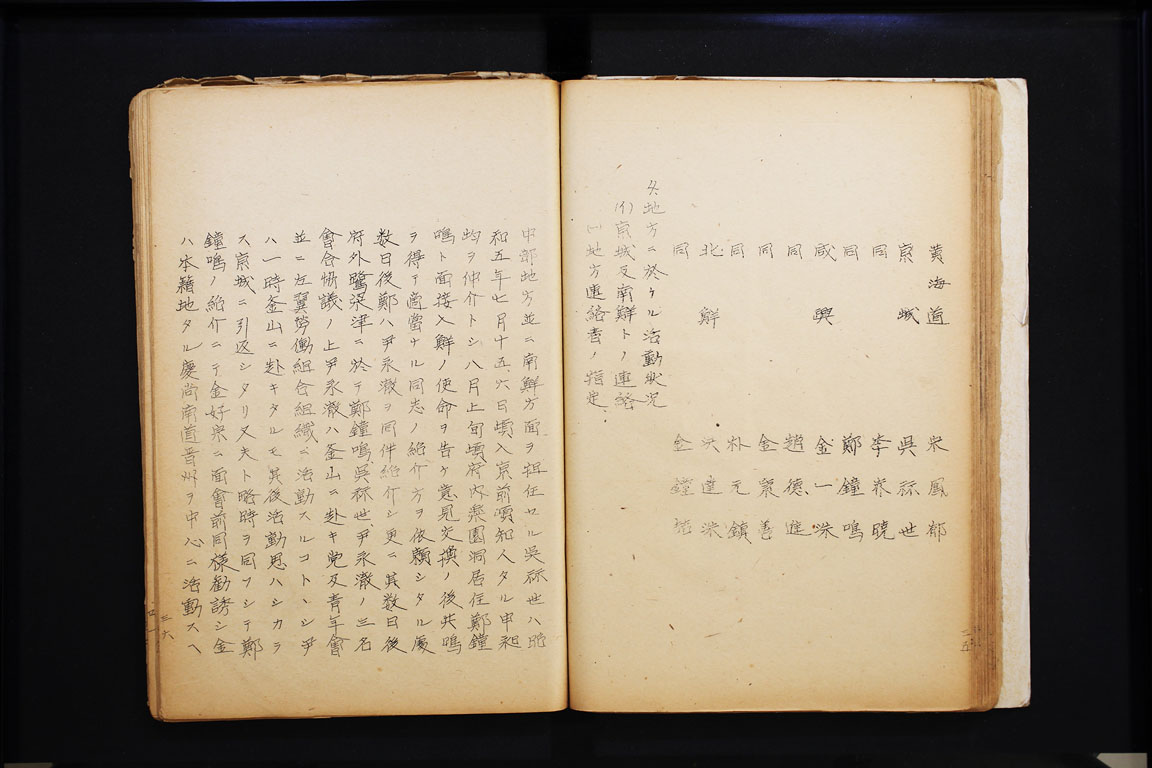 黄海道 宋鳳郁
京城 呉祘世
同 李宗曉
同 鄭鐘鳴
咸興 金一洙
同 趙德進
同 金聚善
同 朴元鎮
北鮮 洪達洙
同 金鐘
各地方ニ於ケル活動状况
(イ)京城及南鮮トノ連絡
(一)地方連絡者ノ指定
二五
中部地方並ニ南鮮方面ヲ担任セル呉祘世ハ昭
和五年七月十五六日頃入京前頃知人タル申
均ヲ仲介トシ八月上旬頃府内楽園洞居住鄭鐘
鳴ト面接入鮮ノ使命ヲ告ケ意見交換ノ後共鳴
ヲ得テ適當ナル同志ノ紹介方ヲ依頼シタル處
数日後鄭ハ尹永澈ヲ同伴紹介シ更ニ其数日後
府外鷺梁津ニ於テ鄭鐘鳴呉祘世尹永澈ノ三名
會合協議ノ上尹永澈ハ釜山ニ赴キ党及青年會
並ニ左翼労働組合組織ニ活動スルコトヽシ尹
ハ一時釜山ニ赴キタルモ其後活動思ハシカラ
ス京城ニ引返シタリ又夫ト略時ヲ同フシテ鄭
鐘鳴ノ紹介ニテ金好宗ニ面會前同様勧誘シ金
ハ本籍地タル慶尚南道晋州ヲ中心ニ活動スヘ
二六